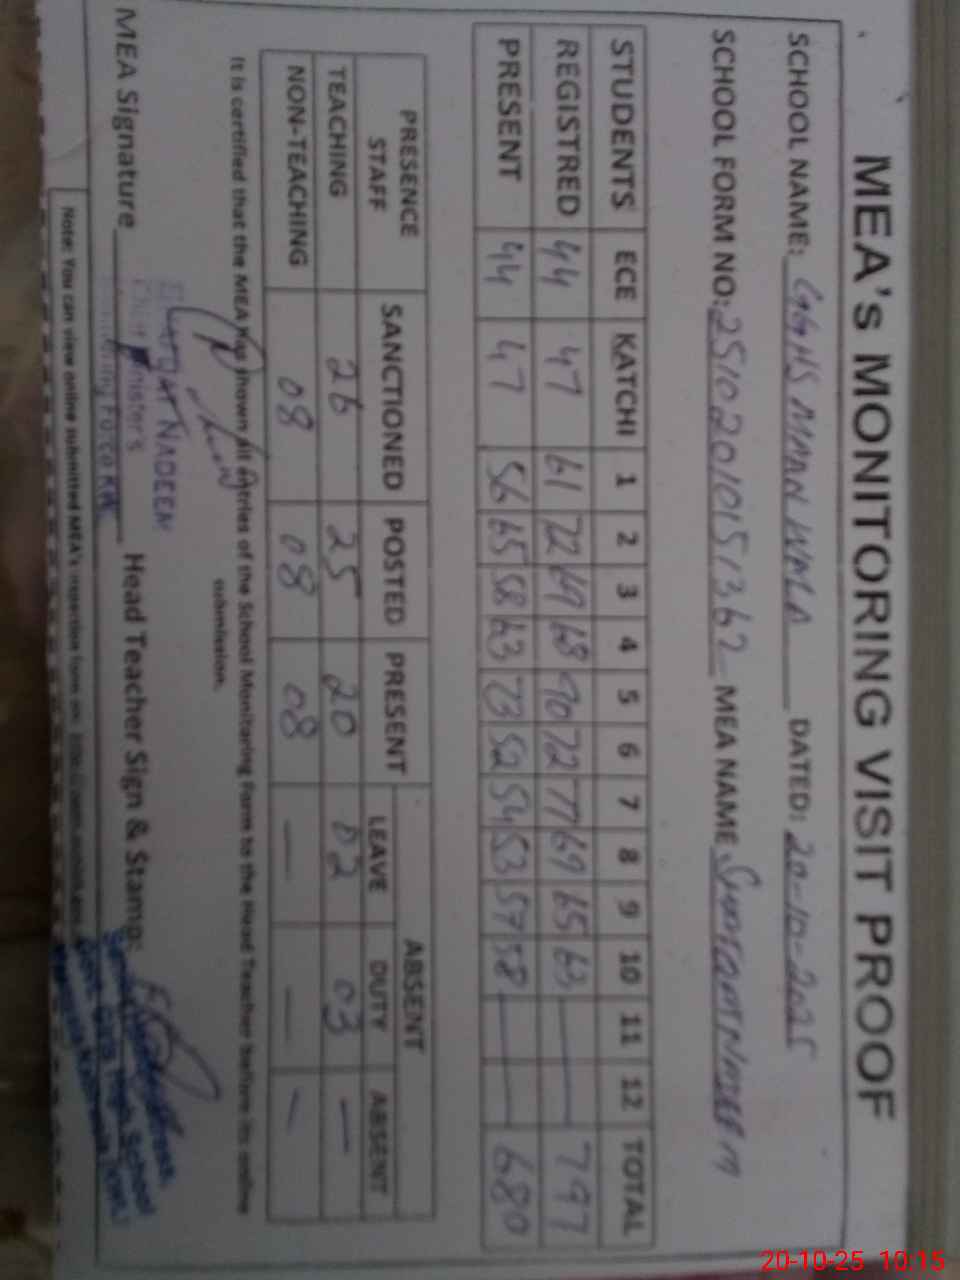 MEA's MONITORING VISIT PROOF
SCHOOL NAME: GGHS MAAN WALA DATED: 20-10-2025
SCHOOL FORM NO: 25102010151362 MEA NAME
STUDENTS ECE KATCHI 1 2 3 4 5 6 7 8 9 10 11 12 TOTAL
REGISTRED 44 47 61 72 69 68 90 72 77 69 65 63 — — 797
PRESENT 44 47 56 65 58 63 73 52 54 53 57 58 — — 680
PRESENCE STAFF SANCTIONED POSTED PRESENT ABSENT
LEAVE DUTY ABSENT
TEACHING 26 25 20 02 03 —
NON-TEACHING 08 08 08 — — —
It is certified that the MEA has shown all entries of the School Monitoring Form to the Head Teacher before its online
submission.
NADEEM
Chief Minister's
Monitoring Force
MEA Signature Head Teacher Sign & Stamp:
High School
Note: You can view online submitted MEA's inspection form on
20-10-25 10:15